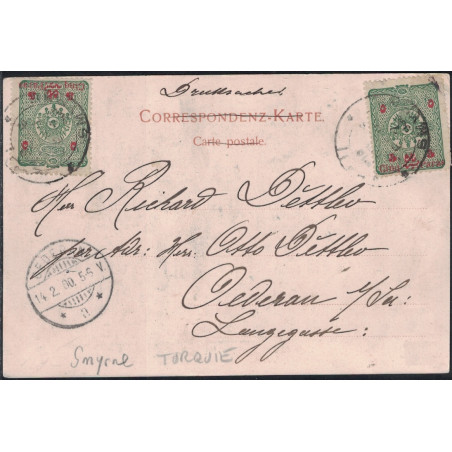 Drucksache
CORRESPONDENZ-KARTE.
Carte postale.
Herrn Richard Dettlov
per Adr: Herrn Otto Dettlov
Oederan i/Sa:
Langegasse.
14.2.00.5-6 V
Smyrne TURQUIE